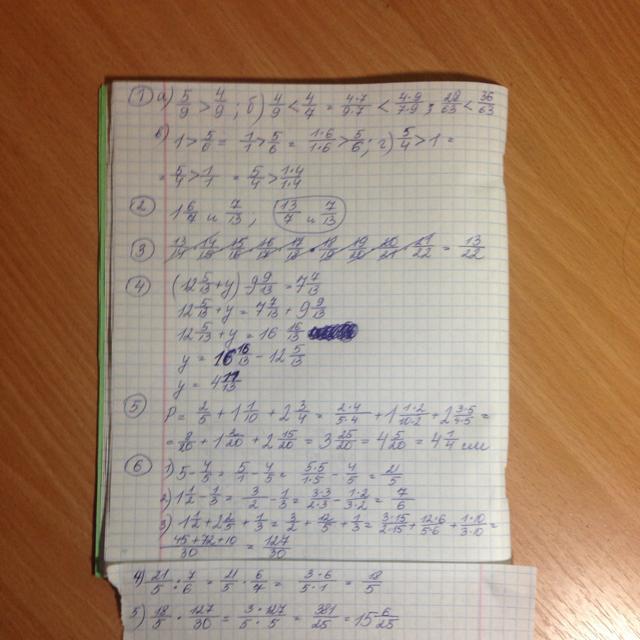 ① а) 5/9 > 4/9; б) 4/9 < 4/7 = 4·7/9·7 < 4·9/7·9; 28/63 < 36/63
в) 1 > 5/6 = 1/1 > 5/6 = 1·6/1·6 > 5/6; г) 5/4 > 1 =
= 5/4 > 1/1 = 5/4 > 1·4/1·4
② 1 6/7 и 7/13; 13/7 и 7/13
③ = 13/22
④ (12 5/13 + y) - 9 9/13 = 7 7/13
12 5/13 + y = 7 7/13 + 9 9/13
12 5/13 + y = 16 16/13
y = 16 16/13 - 12 5/13
y = 4 11/13
⑤ P = 2/5 + 1 1/10 + 2 3/4 = 2·4/5·4 + 1 1·2/10·2 + 2 3·5/4·5 =
= 8/20 + 1 2/20 + 2 15/20 = 3 25/20 = 4 5/20 = 4 1/4 см
⑥ 1) 5 - 4/5 = 5/1 - 4/5 = 5·5/1·5 - 4/5 = 21/5
2) 1 1/2 - 1/3 = 3/2 - 1/3 = 3·3/2·3 - 1·2/3·2 = 7/6
3) 1 1/2 + 2 2/5 + 1/3 = 3/2 + 12/5 + 1/3 = 3·15/2·15 + 12·6/5·6 + 1·10/3·10 =
45+72+10/30 = 127/30
4) 21/5 : 7/6 = 21/5 · 6/7 = 3·6/5·1 = 18/5
5) 18/5 · 127/30 = 3·127/5·5 = 381/25 = 15 6/25